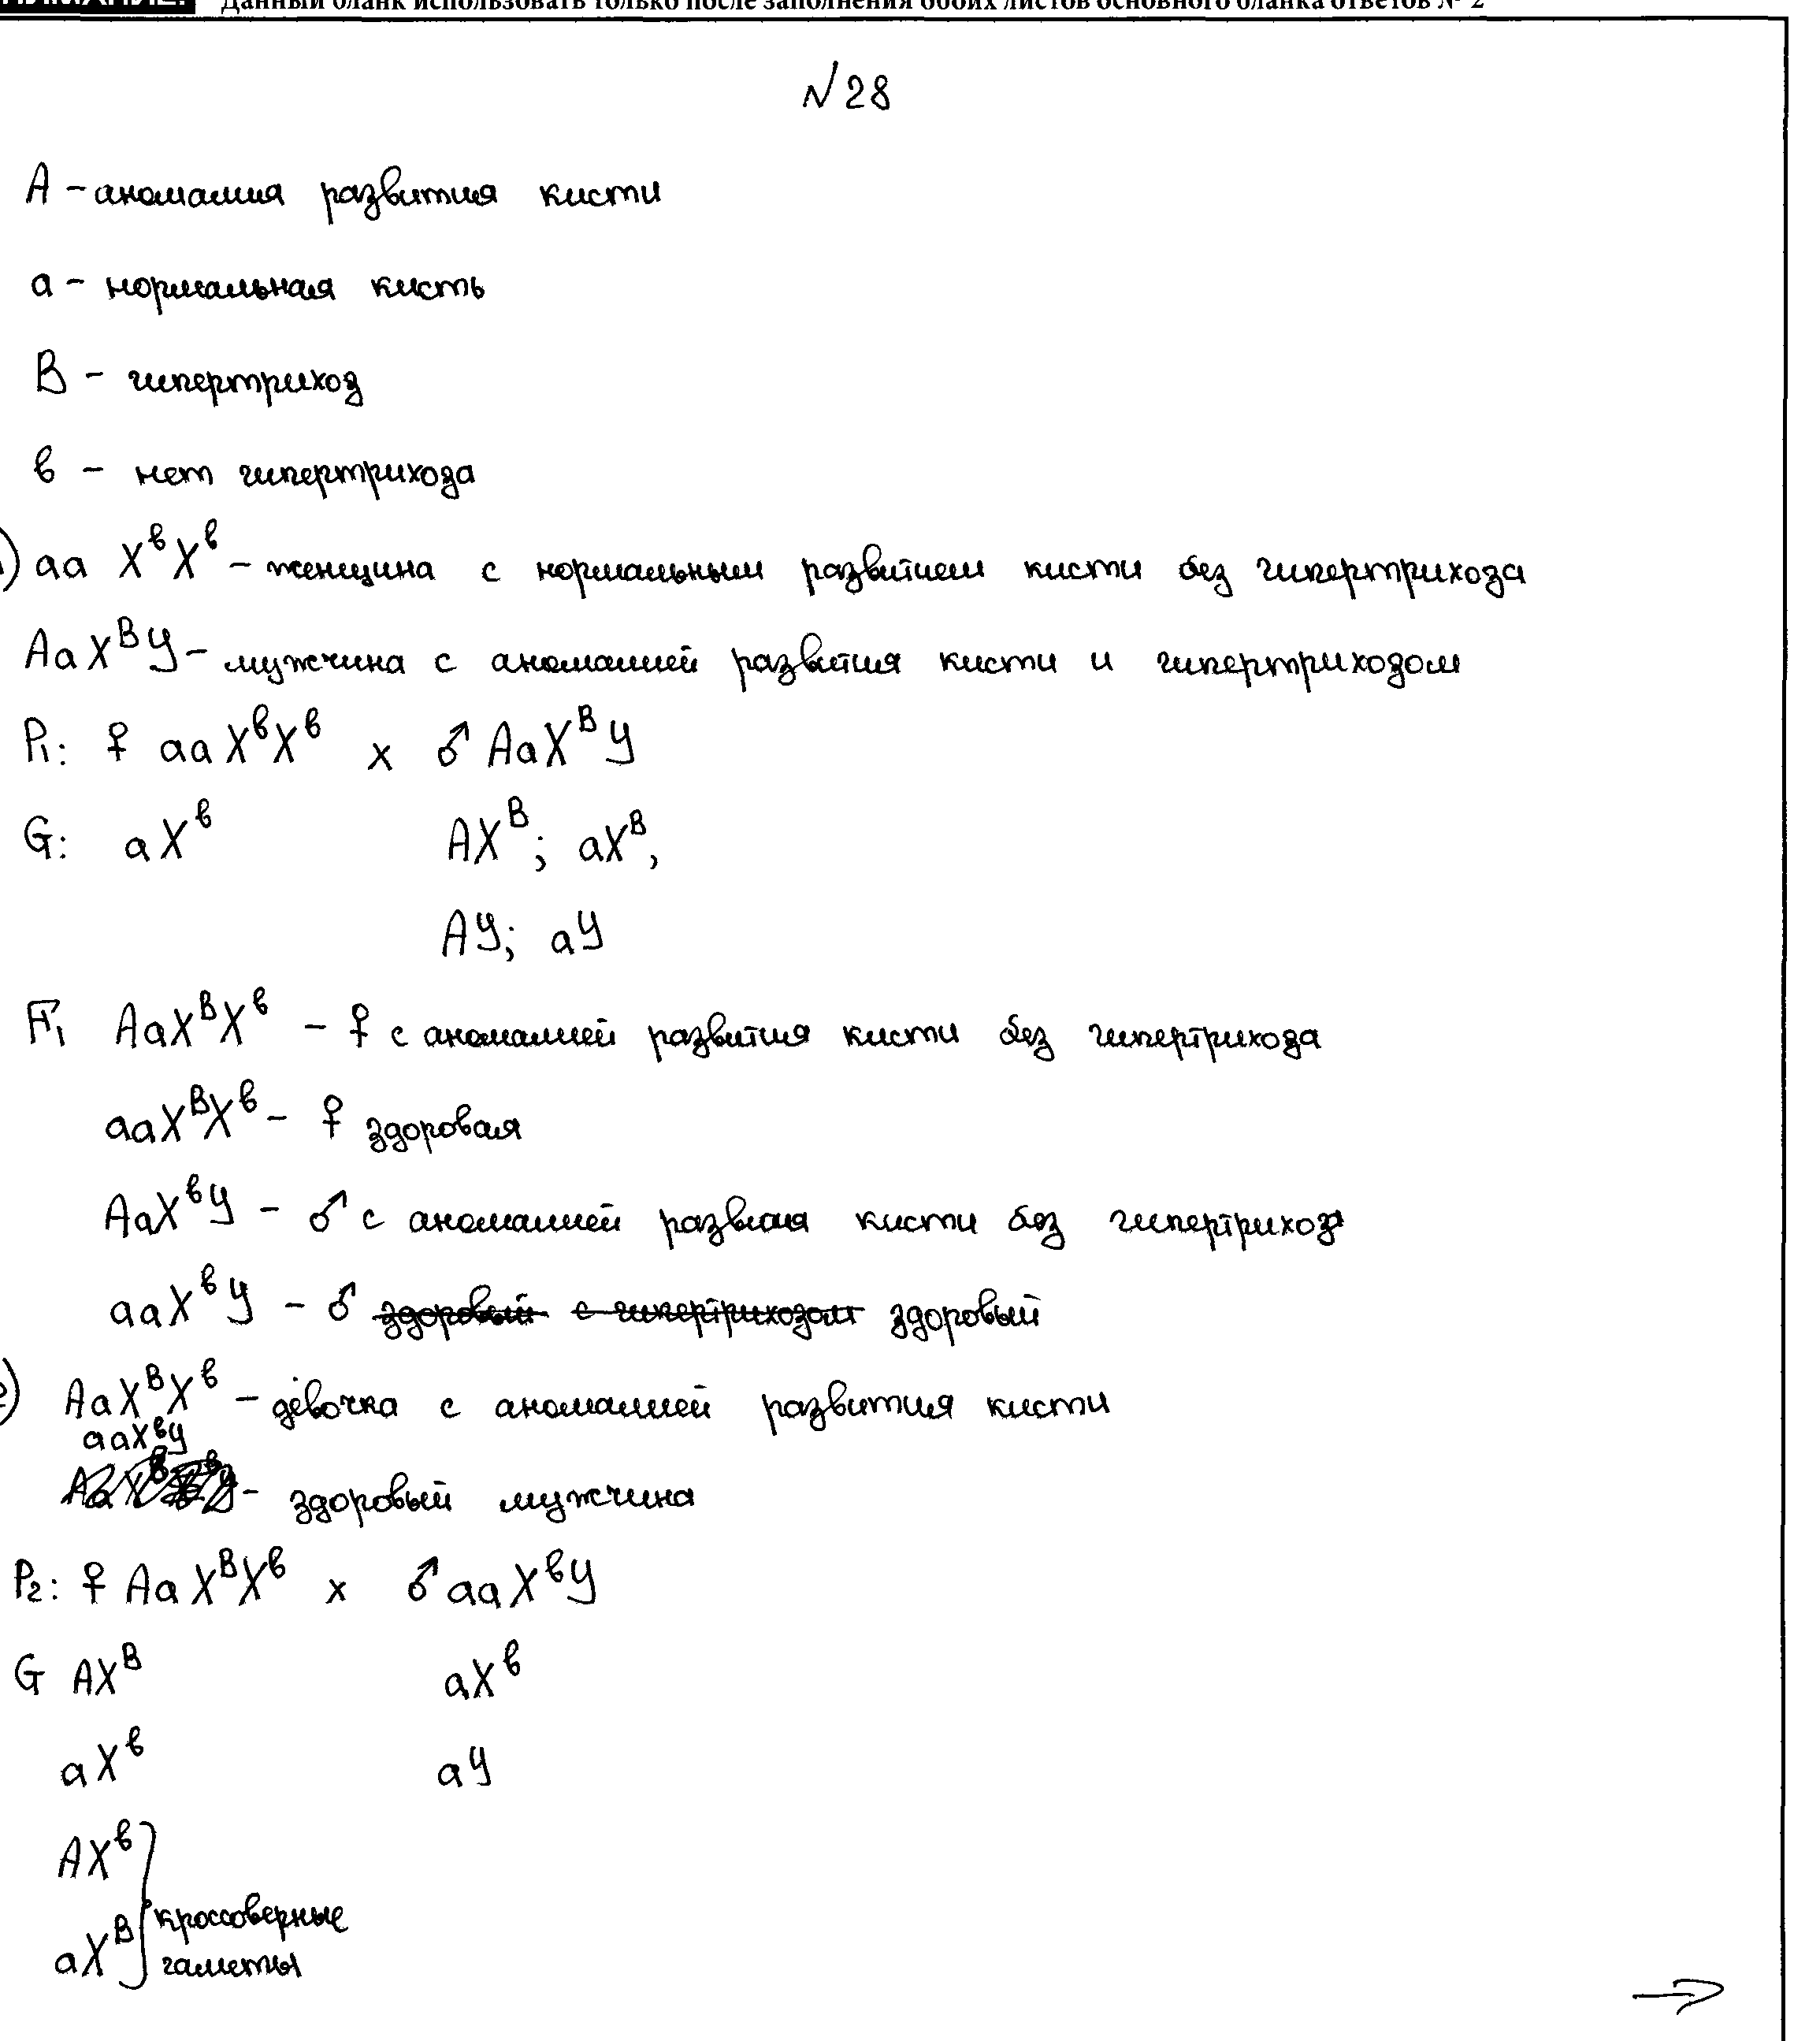 Данный бланк использовать только после заполнения обоих листов основного бланка ответов № 2
№28
A - аномалия развития кисти
a - нормальная кисть
B - гипертрихоз
в - нет гипертрихоза
) aa XᵇXᵇ - женщина с нормальным развитием кисти без гипертрихоза
AaXᴮY - мужчина с аномалией развития кисти и гипертрихозом
P₁: ♀ aaXᵇXᵇ x ♂ AaXᴮY
G: aXᵇ AXᴮ; aXᴮ,
AY; aY
F₁ AaXᴮXᵇ - ♀ с аномалией развития кисти без гипертрихоза
aaXᴮXᵇ - ♀ здоровая
AaXᵇY - ♂ с аномалией развия кисти без гипертрихоз
aaXᵇY - ♂ здоровый с гипертрихозом здоровый
) AaXᴮXᵇ - девочка с аномалией развития кисти
aaXᵇY
- здоровый мужчина
P₂: ♀ AaXᴮXᵇ x ♂ aaXᵇY
G AXᴮ aXᵇ
aXᵇ aY
AXᵇ
aXᴮ кроссоверные
гаметы
→